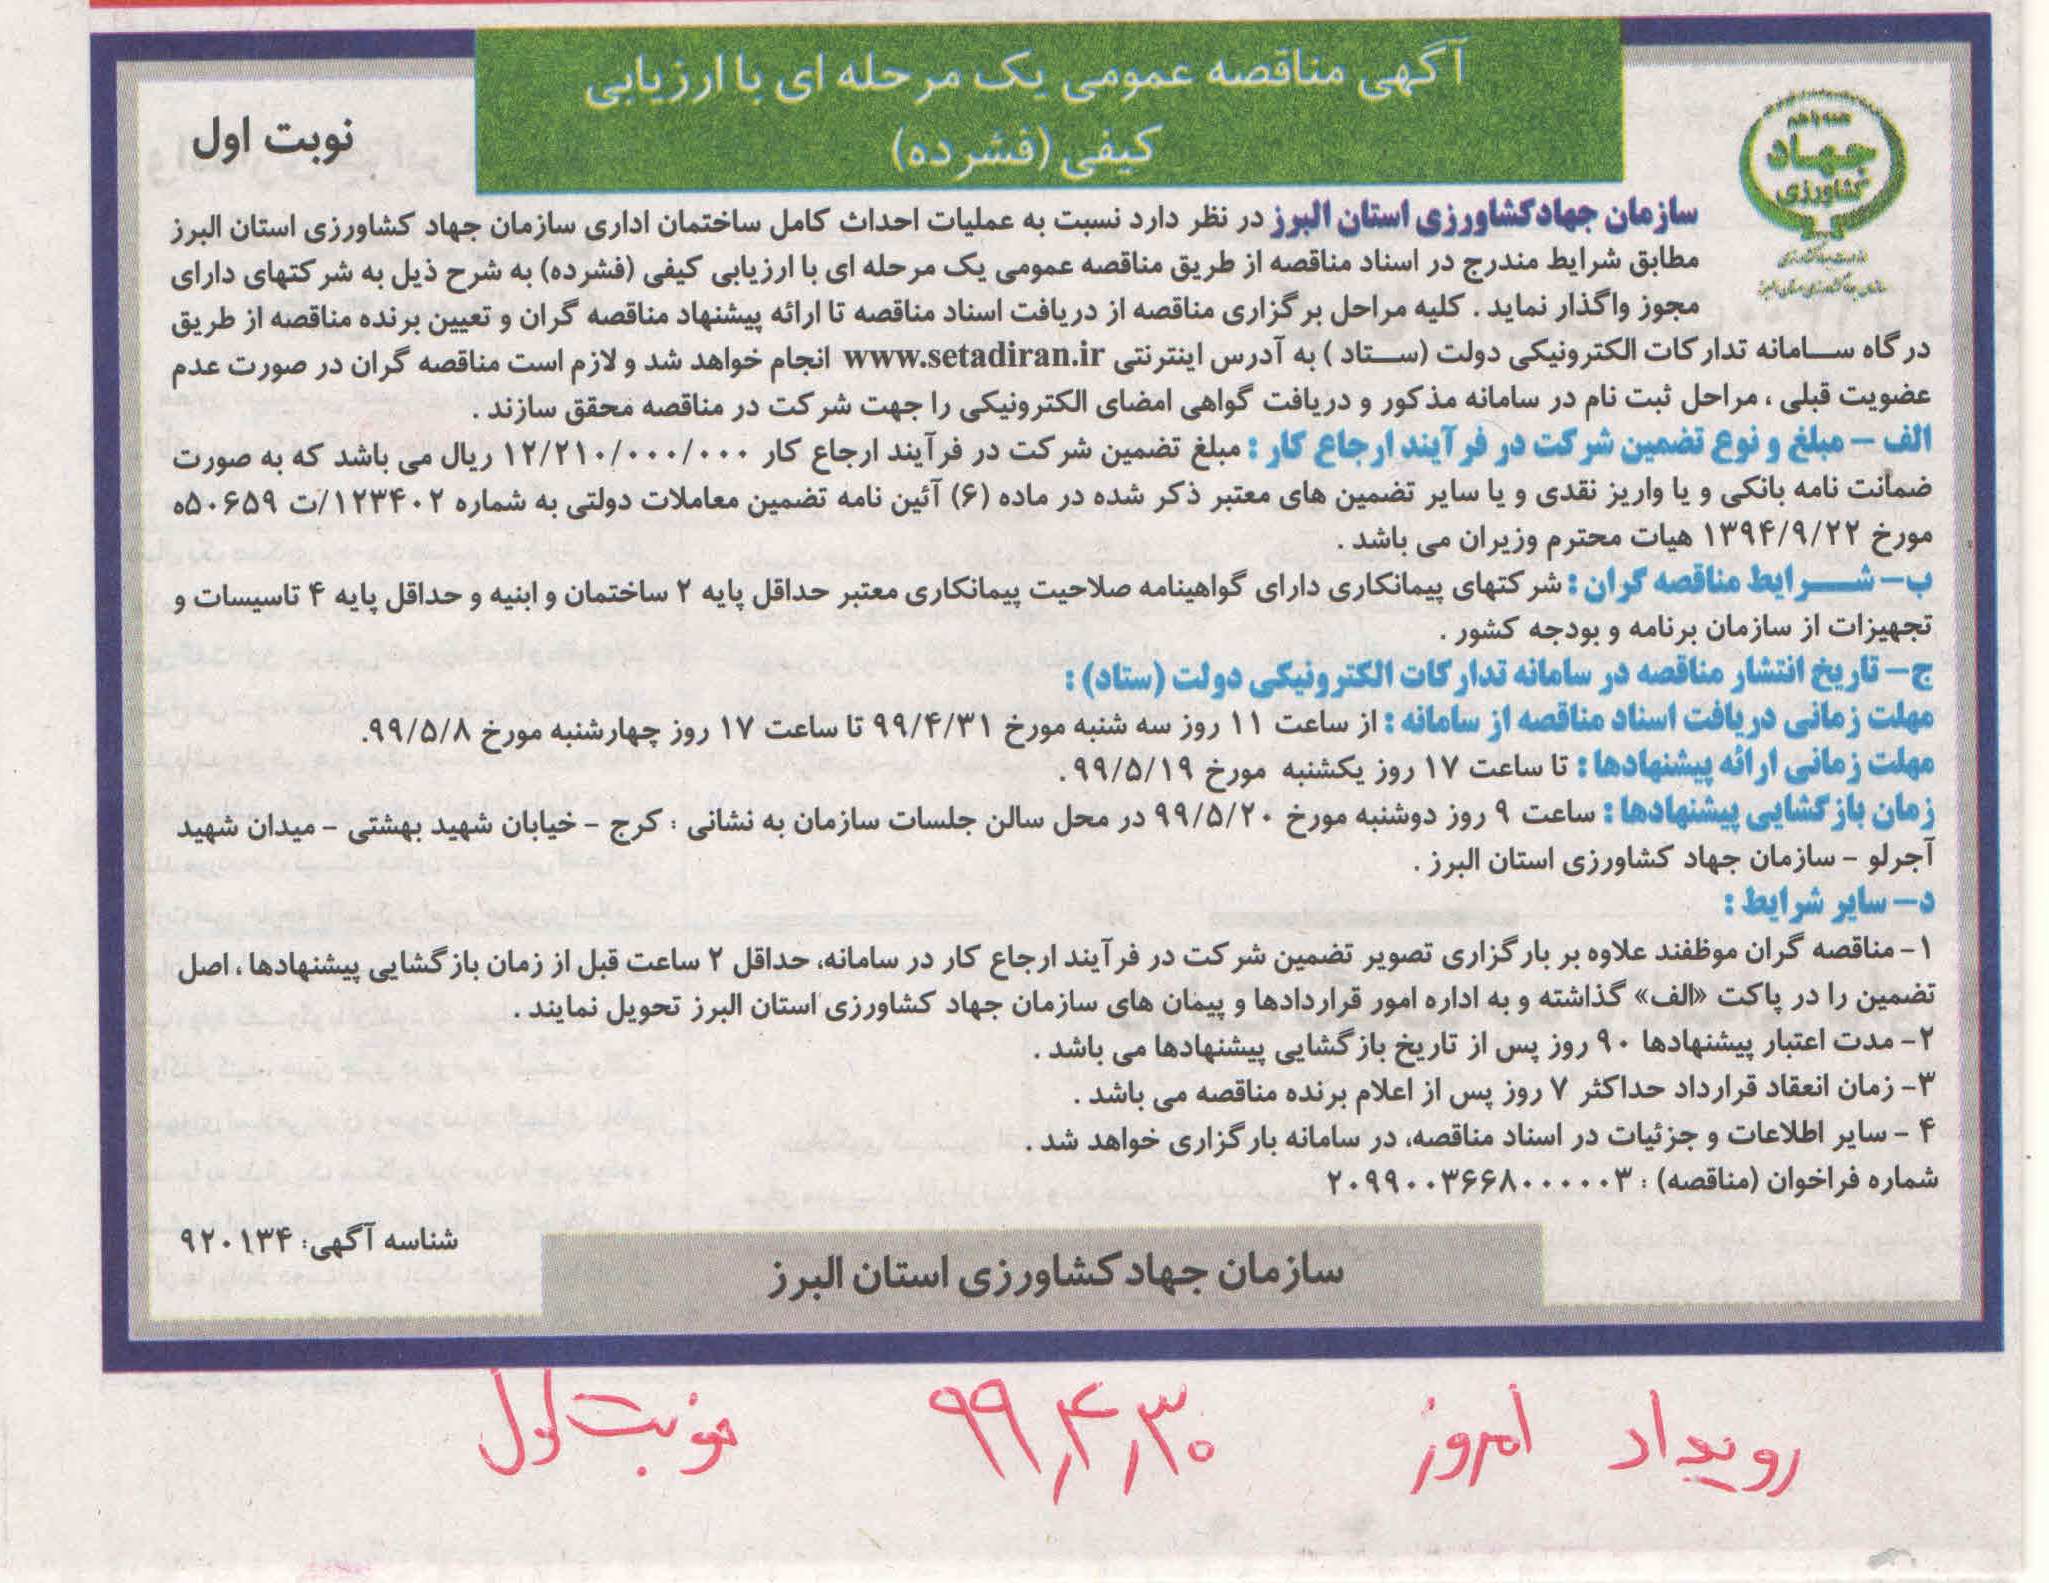 آگهی مناقصه عمومی یک مرحله ای با ارزیابی
کیفی (فشرده)
نوبت اول
همه با هم
جهاد
کشاورزی
سازمان جهاد کشاورزی استان البرز
سازمان جهادکشاورزی استان البرز در نظر دارد نسبت به عملیات احداث کامل ساختمان اداری سازمان جهاد کشاورزی استان البرز
مطابق شرایط مندرج در اسناد مناقصه از طریق مناقصه عمومی یک مرحله ای با ارزیابی کیفی (فشرده) به شرح ذیل به شرکتهای دارای
مجوز واگذار نماید . کلیه مراحل برگزاری مناقصه از دریافت اسناد مناقصه تا ارائه پیشنهاد مناقصه گران و تعیین برنده مناقصه از طریق
درگاه سـامانه تدارکات الکترونیکی دولت (سـتاد ) به آدرس اینترنتی www.setadiran.ir انجام خواهد شد و لازم است مناقصه گران در صورت عدم
عضویت قبلی ، مراحل ثبت نام در سامانه مذکور و دریافت گواهی امضای الکترونیکی را جهت شرکت در مناقصه محقق سازند .
الف – مبلغ و نوع تضمین شرکت در فرآیند ارجاع کار : مبلغ تضمین شرکت در فرآیند ارجاع کار ۱۲/۲۱۰/۰۰۰/۰۰۰ ریال می باشد که به صورت
ضمانت نامه بانکی و یا واریز نقدی و یا سایر تضمین های معتبر ذکر شده در ماده (۶) آئین نامه تضمین معاملات دولتی به شماره ۱۲۳۴۰۲/ت ۵۰۶۵۹ه
مورخ ۱۳۹۴/۹/۲۲ هیات محترم وزیران می باشد .
ب– شـرایط مناقصه گران : شرکتهای پیمانکاری دارای گواهینامه صلاحیت پیمانکاری معتبر حداقل پایه ۲ ساختمان و ابنیه و حداقل پایه ۴ تاسیسات و
تجهیزات از سازمان برنامه و بودجه کشور .
ج– تاریخ انتشار مناقصه در سامانه تدارکات الکترونیکی دولت (ستاد) :
مهلت زمانی دریافت اسناد مناقصه از سامانه : از ساعت ۱۱ روز سه شنبه مورخ ۹۹/۴/۳۱ تا ساعت ۱۷ روز چهارشنبه مورخ ۹۹/۵/۸.
مهلت زمانی ارائه پیشنهادها : تا ساعت ۱۷ روز یکشنبه مورخ ۹۹/۵/۱۹ .
زمان بازگشایی پیشنهادها : ساعت ۹ روز دوشنبه مورخ ۹۹/۵/۲۰ در محل سالن جلسات سازمان به نشانی : کرج – خیابان شهید بهشتی – میدان شهید
آجرلو – سازمان جهاد کشاورزی استان البرز .
د– سایر شرایط :
۱- مناقصه گران موظفند علاوه بر بارگزاری تصویر تضمین شرکت در فرآیند ارجاع کار در سامانه، حداقل ۲ ساعت قبل از زمان بازگشایی پیشنهادها ، اصل
تضمین را در پاکت «الف» گذاشته و به اداره امور قراردادها و پیمان های سازمان جهاد کشاورزی استان البرز تحویل نمایند .
۲- مدت اعتبار پیشنهادها ۹۰ روز پس از تاریخ بازگشایی پیشنهادها می باشد .
۳- زمان انعقاد قرارداد حداکثر ۷ روز پس از اعلام برنده مناقصه می باشد .
۴ - سایر اطلاعات و جزئیات در اسناد مناقصه، در سامانه بارگزاری خواهد شد .
شماره فراخوان (مناقصه) : ۲۰۹۹۰۰۳۶۶۸۰۰۰۰۰۳
شناسه آگهی: ۹۲۰۱۳۴
سازمان جهاد کشاورزی استان البرز
رویداد امروز ۹۹٫۴٫۳۰ نوبت اول